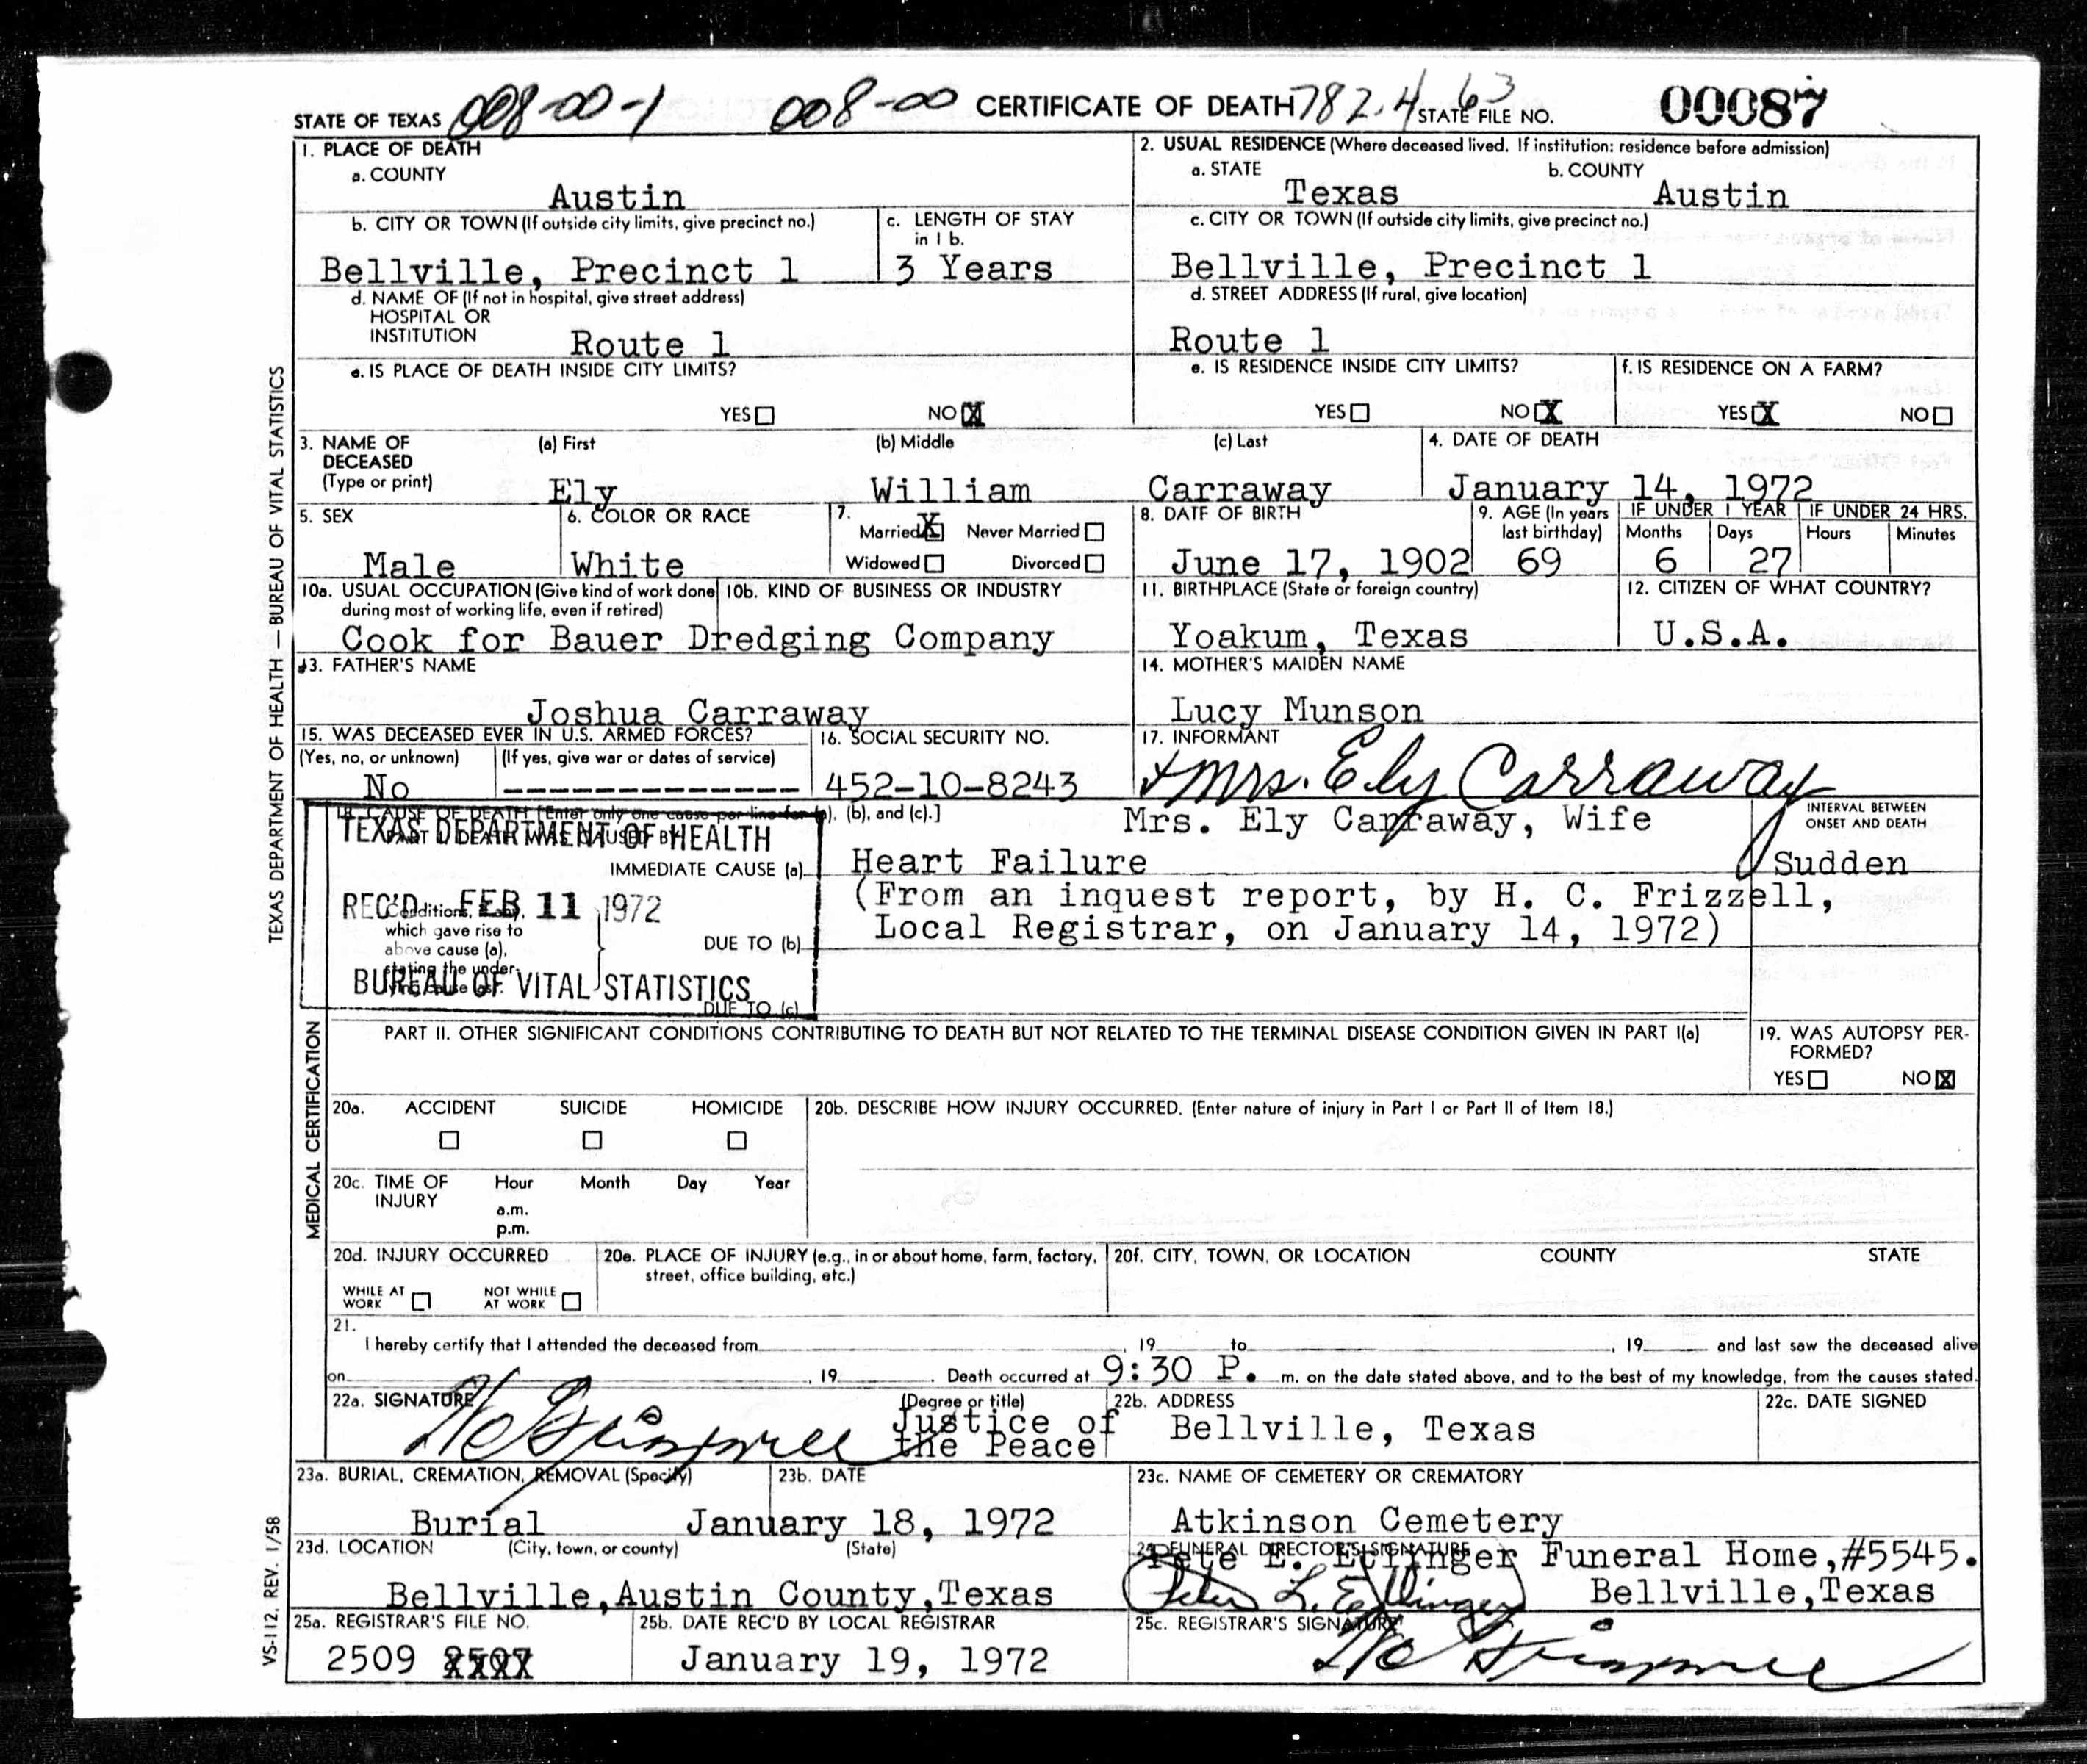 STATE OF TEXAS 008-00-1 008-00 CERTIFICATE OF DEATH 782.4 63 STATE FILE NO. 00087
1. PLACE OF DEATH
a. COUNTY
Austin
2. USUAL RESIDENCE (Where deceased lived. If institution: residence before admission)
a. STATE b. COUNTY
Texas Austin
b. CITY OR TOWN (If outside city limits, give precinct no.)
Bellville, Precinct 1
c. LENGTH OF STAY
in 1 b.
3 Years
c. CITY OR TOWN (If outside city limits, give precinct no.)
Bellville, Precinct 1
d. NAME OF (If not in hospital, give street address)
HOSPITAL OR
INSTITUTION
Route 1
d. STREET ADDRESS (If rural, give location)
Route 1
e. IS PLACE OF DEATH INSIDE CITY LIMITS?
YES NO X
e. IS RESIDENCE INSIDE CITY LIMITS?
YES NO X
f. IS RESIDENCE ON A FARM?
YES X NO
3. NAME OF
DECEASED
(Type or print)
(a) First (b) Middle (c) Last
Ely William Carraway
4. DATE OF DEATH
January 14, 1972
5. SEX
Male
6. COLOR OR RACE
White
7.
Married X Never Married
Widowed Divorced
8. DATE OF BIRTH
June 17, 1902
9. AGE (In years
last birthday)
69
IF UNDER 1 YEAR
Months Days
6 27
IF UNDER 24 HRS.
Hours Minutes
10a. USUAL OCCUPATION (Give kind of work done
during most of working life, even if retired)
10b. KIND OF BUSINESS OR INDUSTRY
Cook for Bauer Dredging Company
11. BIRTHPLACE (State or foreign country)
Yoakum, Texas
12. CITIZEN OF WHAT COUNTRY?
U.S.A.
13. FATHER'S NAME
Joshua Carraway
14. MOTHER'S MAIDEN NAME
Lucy Munson
15. WAS DECEASED EVER IN U.S. ARMED FORCES?
(Yes, no, or unknown) (If yes, give war or dates of service)
No --------------
16. SOCIAL SECURITY NO.
452-10-8243
17. INFORMANT
x Mrs. Ely Carraway
Mrs. Ely Carraway, Wife
18. CAUSE OF DEATH [Enter only one cause per line for (a), (b), and (c).]
PART I. DEATH WAS CAUSED BY:
IMMEDIATE CAUSE (a)
Heart Failure
(From an inquest report, by H. C. Frizzell,
Local Registrar, on January 14, 1972)
INTERVAL BETWEEN
ONSET AND DEATH
Sudden
Conditions, if any,
which gave rise to
above cause (a),
stating the under-
lying cause last.
DUE TO (b)
DUE TO (c)
TEXAS DEPARTMENT OF HEALTH
REC'D FEB 11 1972
BUREAU OF VITAL STATISTICS
PART II. OTHER SIGNIFICANT CONDITIONS CONTRIBUTING TO DEATH BUT NOT RELATED TO THE TERMINAL DISEASE CONDITION GIVEN IN PART I(a)
19. WAS AUTOPSY PER-
FORMED?
YES NO X
20a. ACCIDENT SUICIDE HOMICIDE
20b. DESCRIBE HOW INJURY OCCURRED. (Enter nature of injury in Part I or Part II of Item 18.)
20c. TIME OF
INJURY
Hour Month Day Year
a.m.
p.m.
20d. INJURY OCCURRED
WHILE AT
WORK
NOT WHILE
AT WORK
20e. PLACE OF INJURY (e.g., in or about home, farm, factory,
street, office building, etc.)
20f. CITY, TOWN, OR LOCATION COUNTY STATE
21.
I hereby certify that I attended the deceased from , 19 to , 19 and last saw the deceased alive
on , 19 . Death occurred at 9:30 P. m. on the date stated above, and to the best of my knowledge, from the causes stated.
22a. SIGNATURE (Degree or title)
HC Frizzell Justice of
the Peace
22b. ADDRESS
Bellville, Texas
22c. DATE SIGNED
23a. BURIAL, CREMATION, REMOVAL (Specify)
Burial
23b. DATE
January 18, 1972
23c. NAME OF CEMETERY OR CREMATORY
Atkinson Cemetery
23d. LOCATION (City, town, or county) (State)
Bellville, Austin County, Texas
24. FUNERAL DIRECTOR'S SIGNATURE
Pete E. Etlinger Funeral Home, #5545.
Bellville, Texas
25a. REGISTRAR'S FILE NO.
2509
25b. DATE REC'D BY LOCAL REGISTRAR
January 19, 1972
25c. REGISTRAR'S SIGNATURE
HC Frizzell
TEXAS DEPARTMENT OF HEALTH — BUREAU OF VITAL STATISTICS
MEDICAL CERTIFICATION
VS-112, REV. 1/58